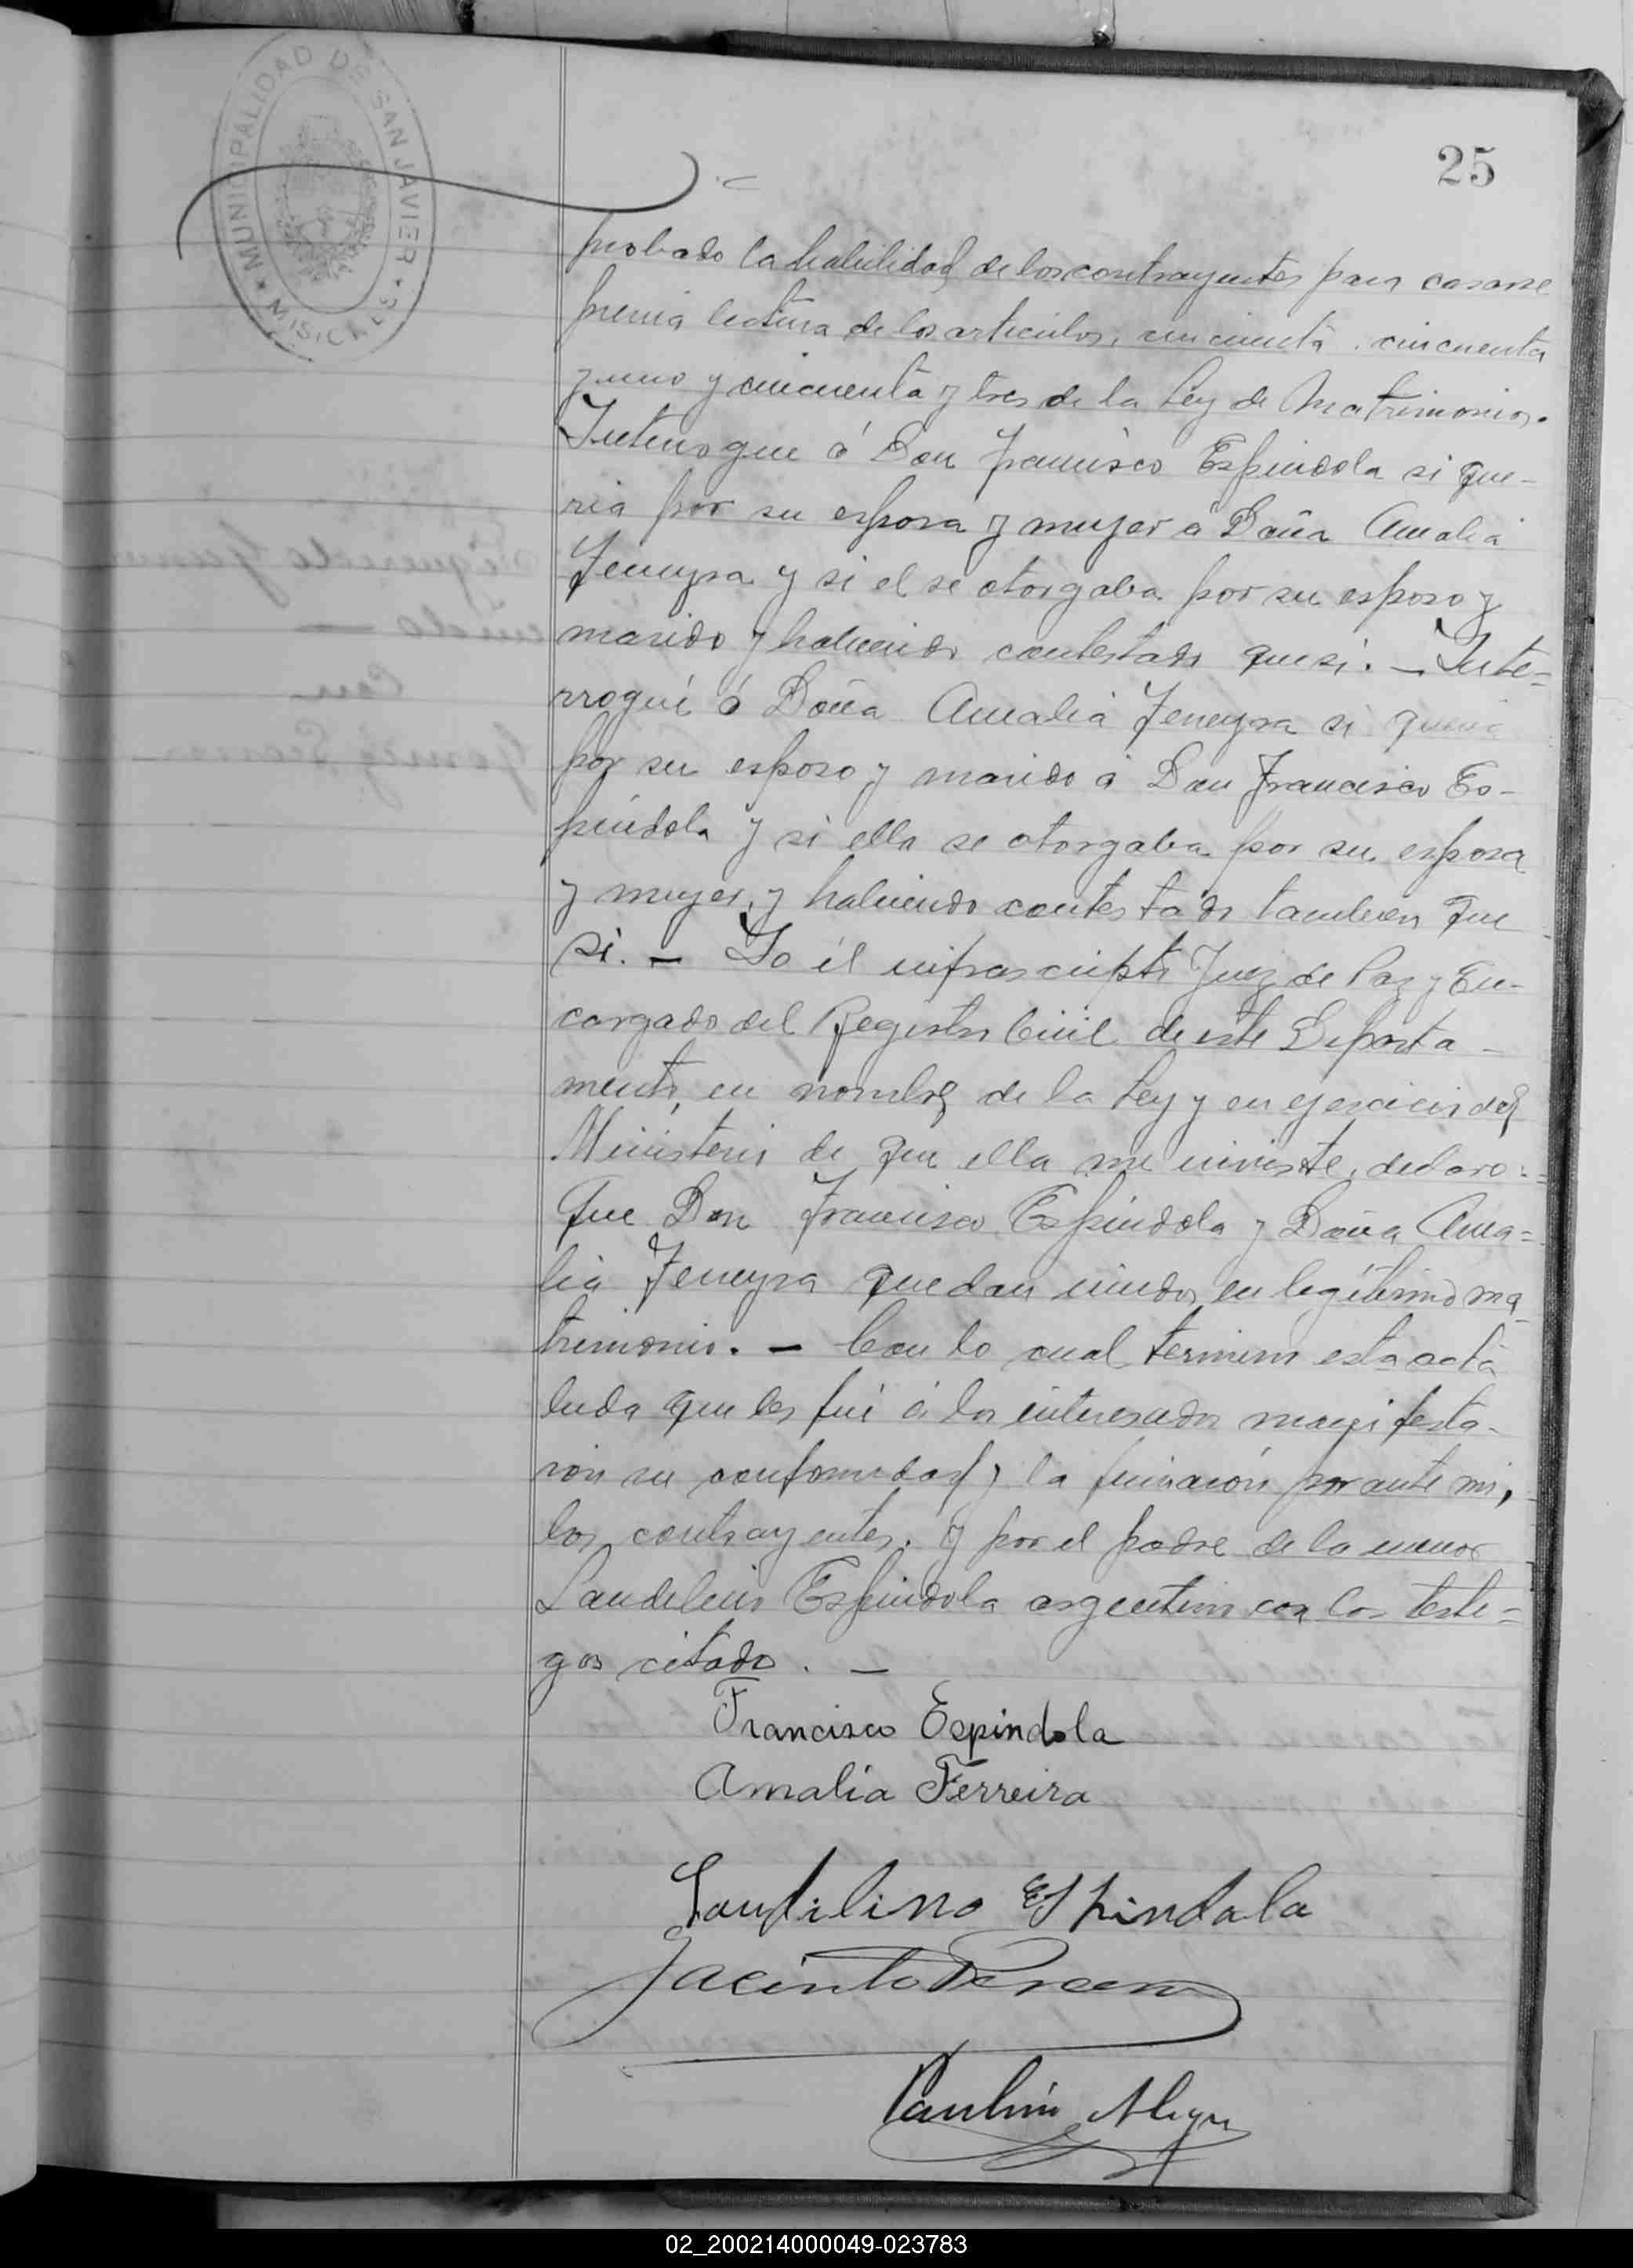 MUNICIPALIDAD DE SAN JAVIER
25
probado la habilidad de los contrayentes para casarse
previa lectura de los articulos, cincuenta, cincuenta
y uno y cincuenta y tres de la Ley de Matrimonio.
Interrogue á Don Francisco Espindola si que-
ria por su esposa y mujer á Doña Amalia
Ferreyra y si el se otorgaba por su esposo y
marido y habiendo contestado que si. — Inte-
rrogué á Doña Amalia Ferreyra si queria
por su esposo y marido á Don Francisco Es-
píndola y si ella se otorgaba por su esposa
y mujer, y habiendo contestado tambien que
si. — Yo él infrascripto Juez de Paz y En-
cargado del Registro Civil de este Departa-
mento, en nombre de la Ley y en ejercicio del
Ministerio de que ella me inviste, declaro:
Que Don Francisco Espindola y Doña Ama-
lia Ferreyra quedan unidos en legítimo ma
trimonio. — Con lo cual termino esta acta
leida que les fué á los interesados manifesta-
ron su conformidad y la firmaron por ante mi,
los contrayentes, y por el padre de la menor
Landelino Espindola argentino con los testi-
gos citado. —
Francisco Espindola
Amalia Ferreira
Landilino Espindola
Jacinto
Paulino Alegre
02_200214000049-023783